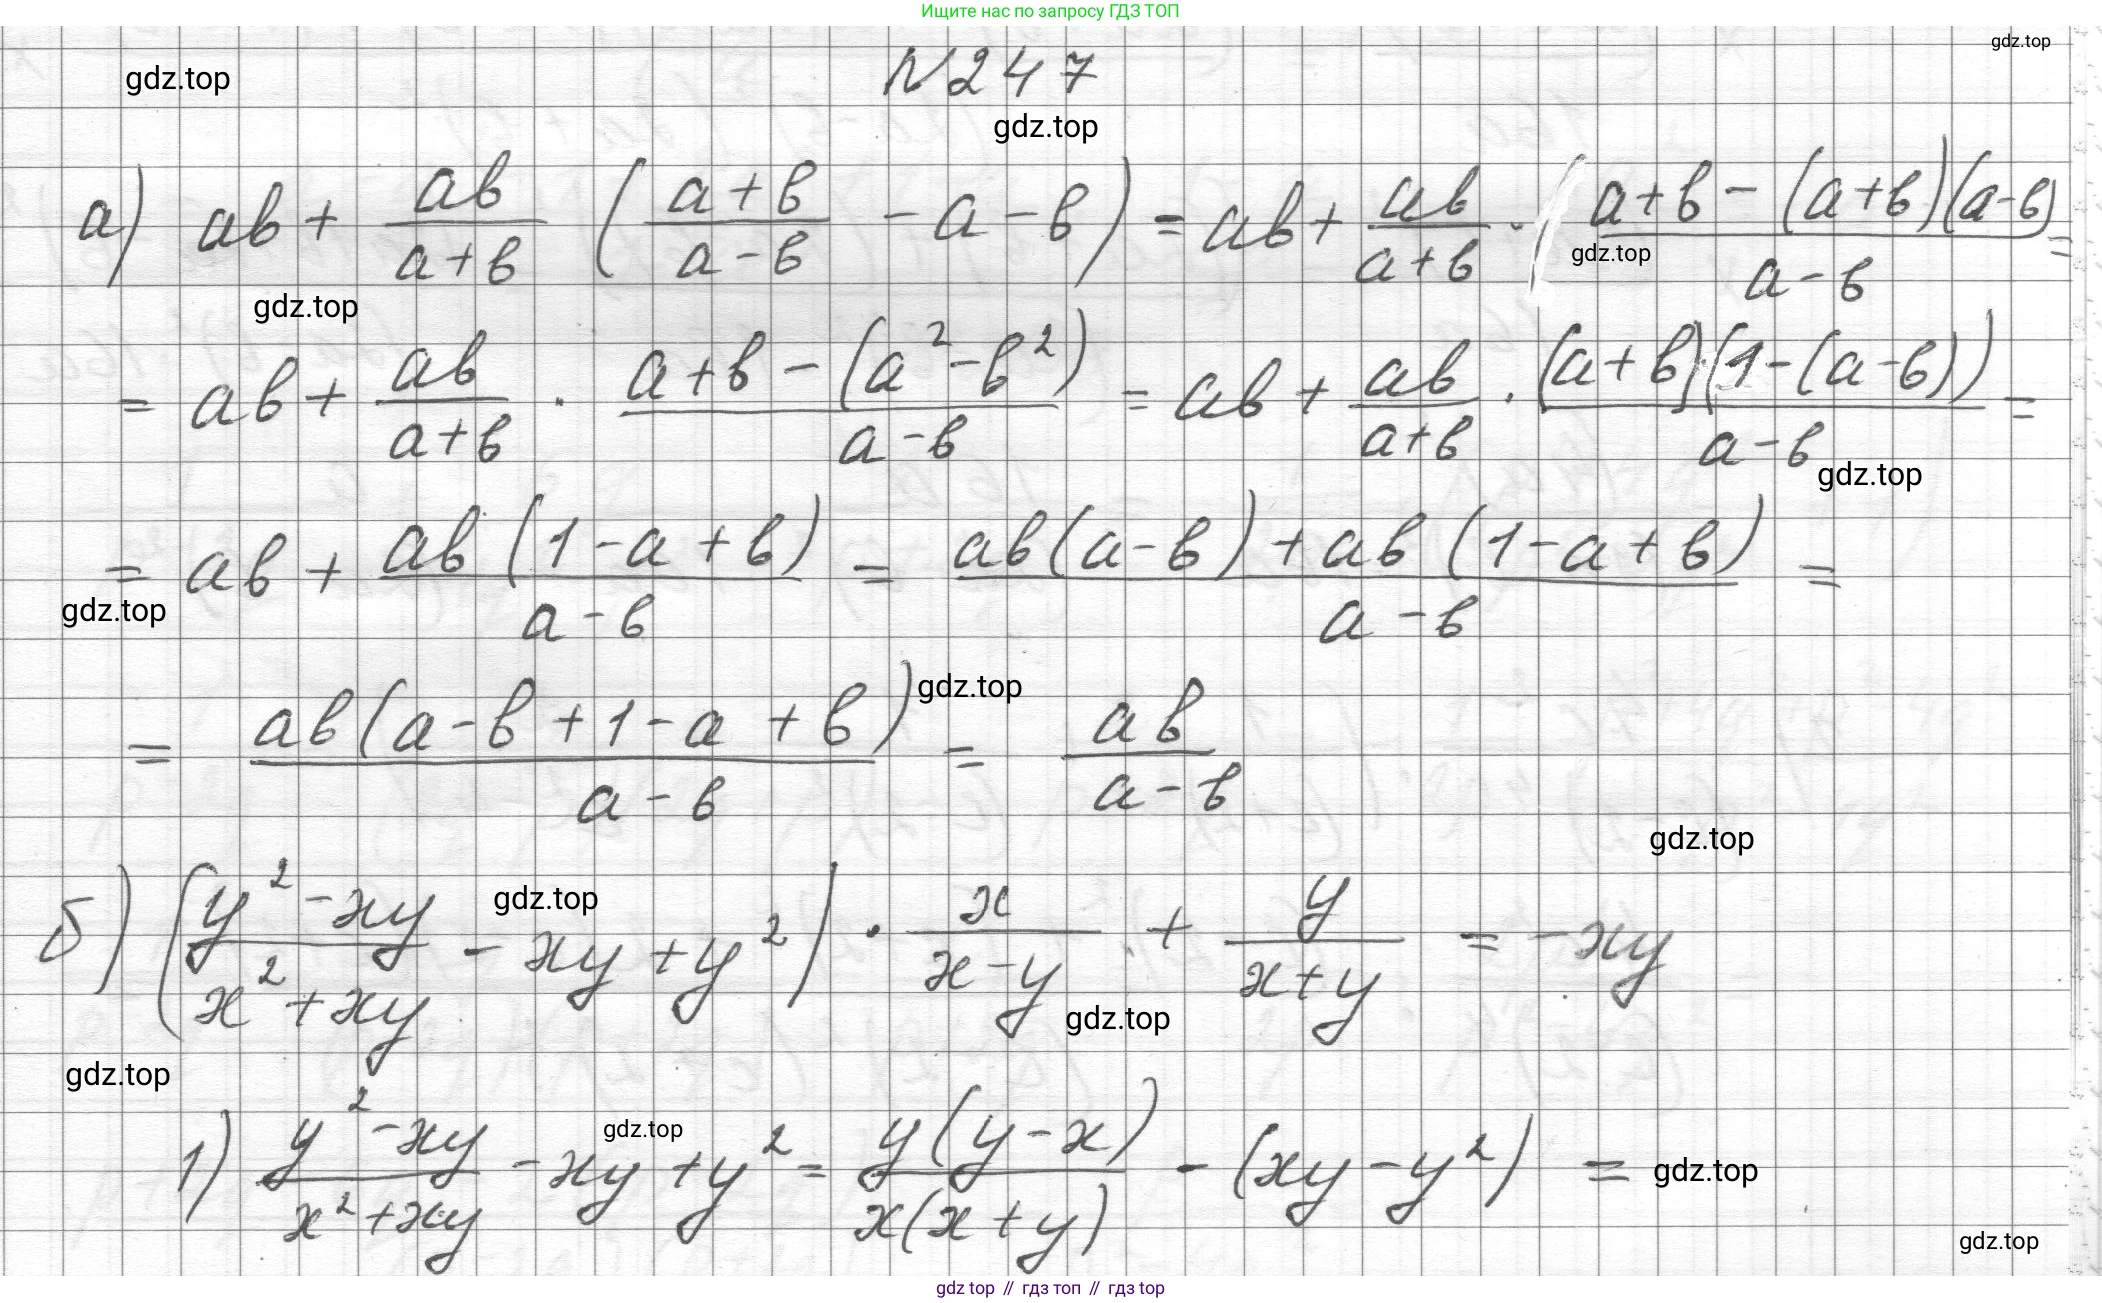 Ищите нас по запросу ГДЗ ТОП
gdz.top
gdz.top
№247
gdz.top
а) ab + ab/(a+b) ((a+b)/(a-b) - a - b) = ab + ab/(a+b) · (a+b - (a+b)(a-b))/(a-b) =
gdz.top
gdz.top
= ab + ab/(a+b) · (a+b - (a²-b²))/(a-b) = ab + ab/(a+b) · (a+b)(1-(a-b))/(a-b) =
gdz.top
= ab + ab(1-a+b)/(a-b) = (ab(a-b) + ab(1-a+b))/(a-b) =
gdz.top
gdz.top
= ab(a-b+1-a+b)/(a-b) = ab/(a-b)
gdz.top
gdz.top
б) ((y²-xy)/(x²+xy) - xy + y²) · x/(x-y) + y/(x+y) = -xy
gdz.top
gdz.top
gdz.top
1) (y²-xy)/(x²+xy) - xy + y² = y(y-x)/(x(x+y)) - (xy-y²) =
gdz.top
gdz.top
gdz top // гдз топ // gdz top